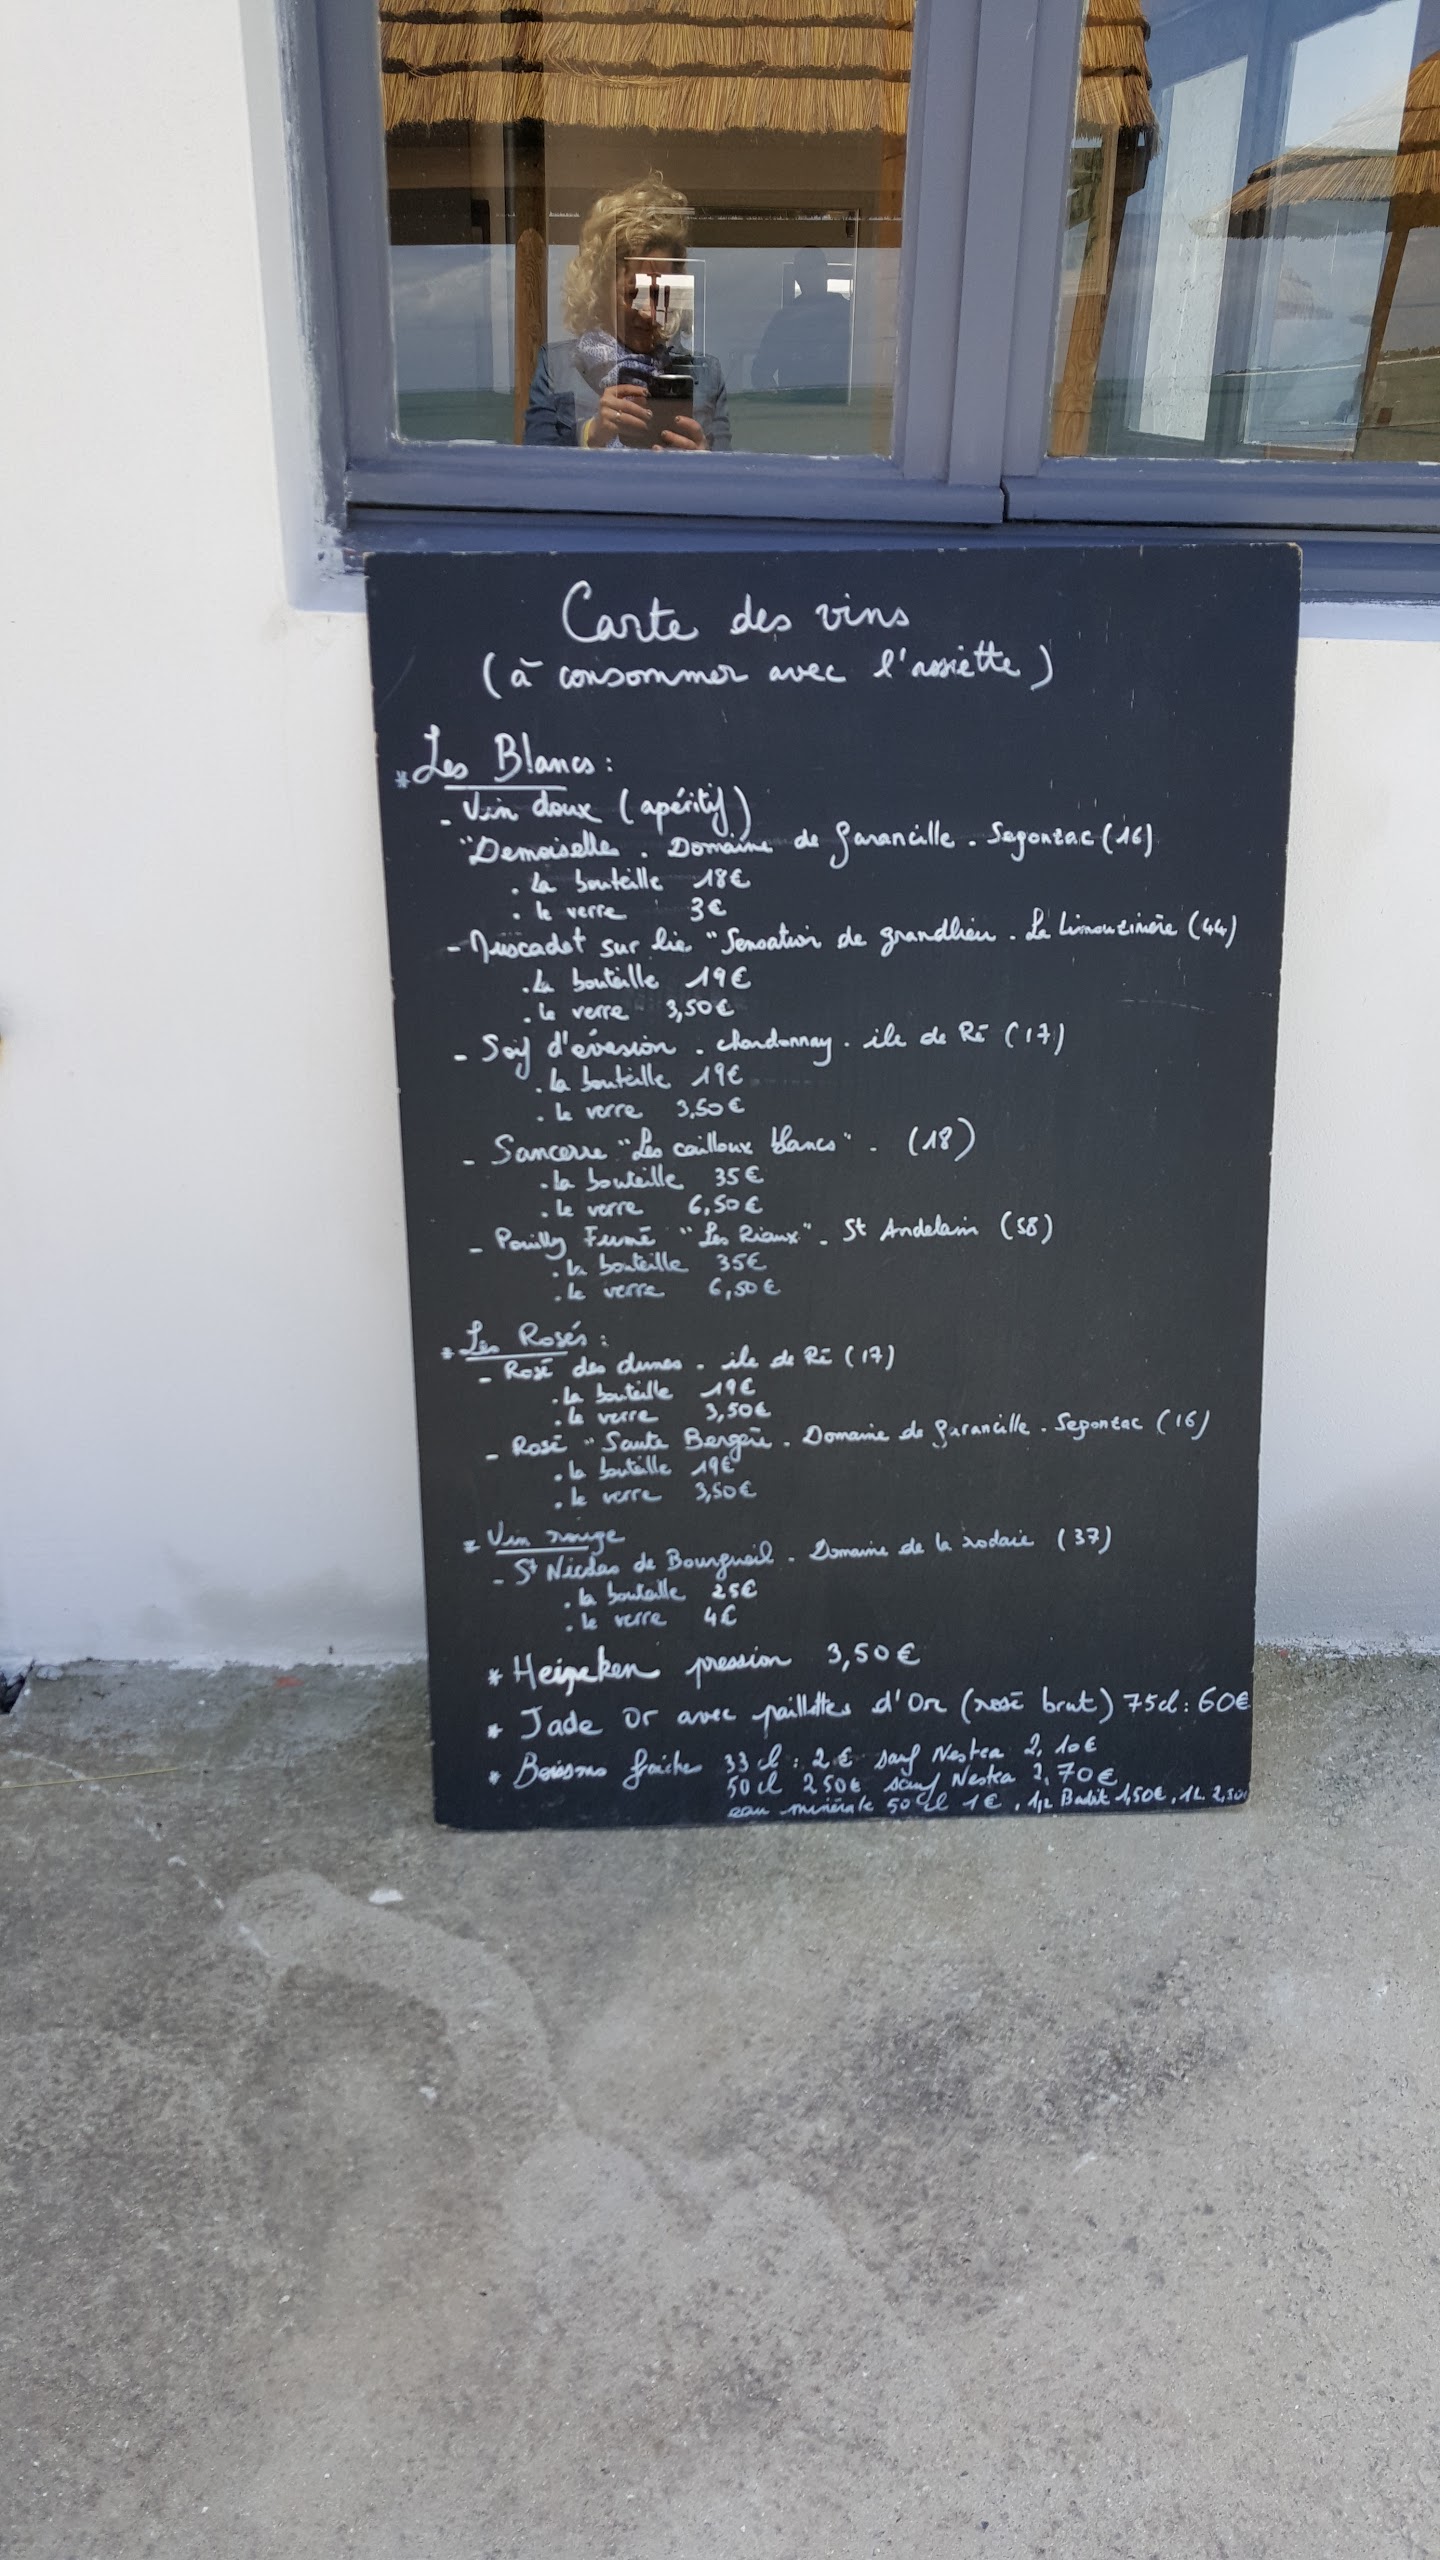 Carte des vins
(à consommer avec l'assiette)
* Les Blancs :
- Vin doux (apéritif)
"Demoiselle . Domaine de Garancille . Segonzac (16)
. La bouteille 18€
. le verre 3€
- Muscadet sur lie "Sensation de grandlieu . La Limouzinière (44)
. La bouteille 19€
. le verre 3,50€
- Soif d'évasion . chardonnay . ile de Ré (17)
. la bouteille 19€
. le verre 3,50€
- Sancerre "Les cailloux blancs" . (18)
. la bouteille 35€
. le verre 6,50€
- Pouilly Fumé "Les Riaux" . St Andelain (58)
. la bouteille 35€
. le verre 6,50€
* Les Rosés :
- Rosé des dunes . ile de Ré (17)
. la bouteille 19€
. le verre 3,50€
- Rosé "Saute Bergère . Domaine de Garancille . Segonzac (16)
. la bouteille 19€
. le verre 3,50€
* Vin rouge
- St Nicolas de Bourgueil . Domaine de la rodaie (37)
. la bouteille 25€
. le verre 4€
* Heineken pression 3,50€
* Jade Or avec paillettes d'Or (rosé brut) 75cl : 60€
* Boissons fraiches 33cl : 2€ sauf Nestea 2,10€
50cl 2 50€ sauf Nestea 2,70€
eau minérale 50cl 1€, 1/2 Badoit 1,50€, 1L 2,50€